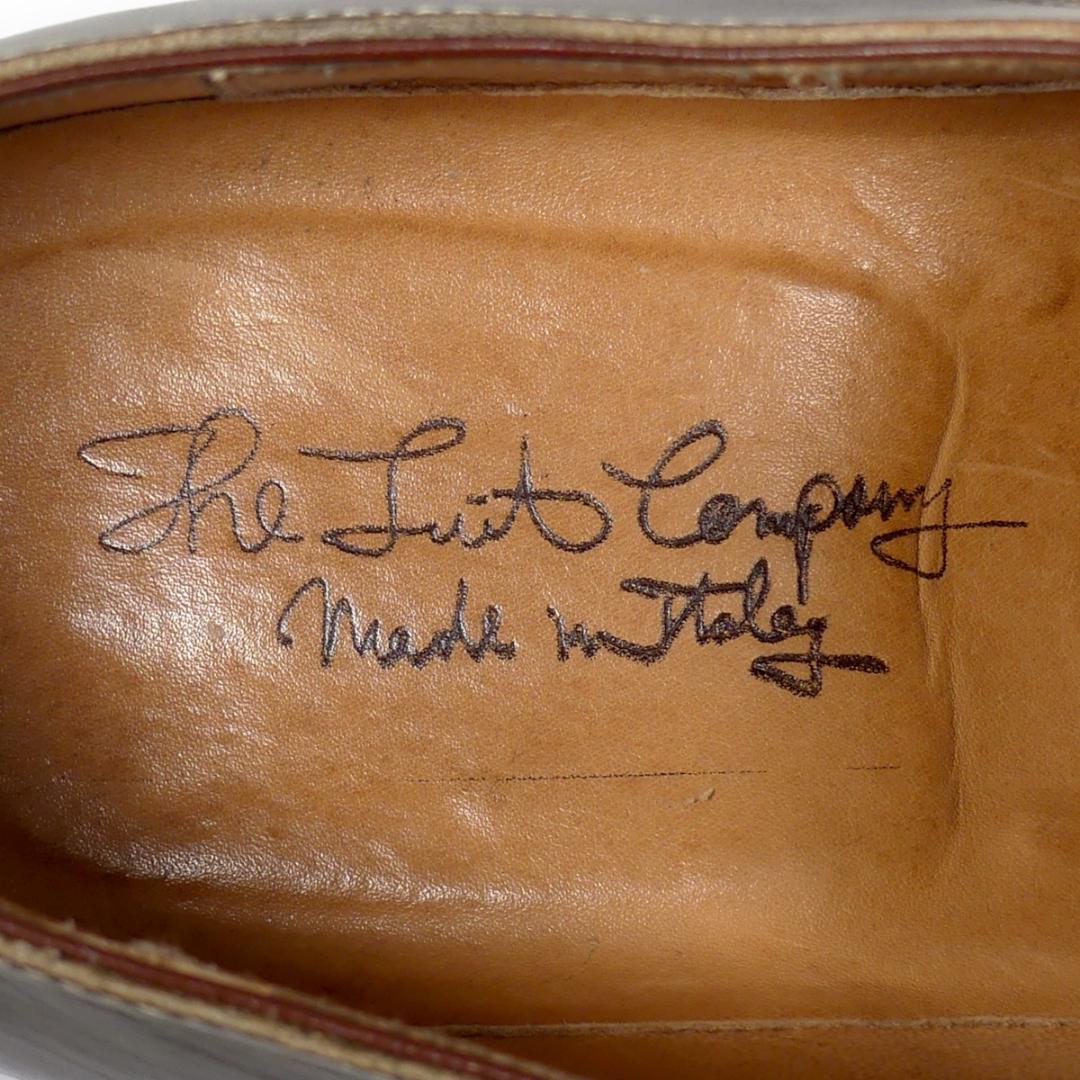 The Suit Company
Made in Italy